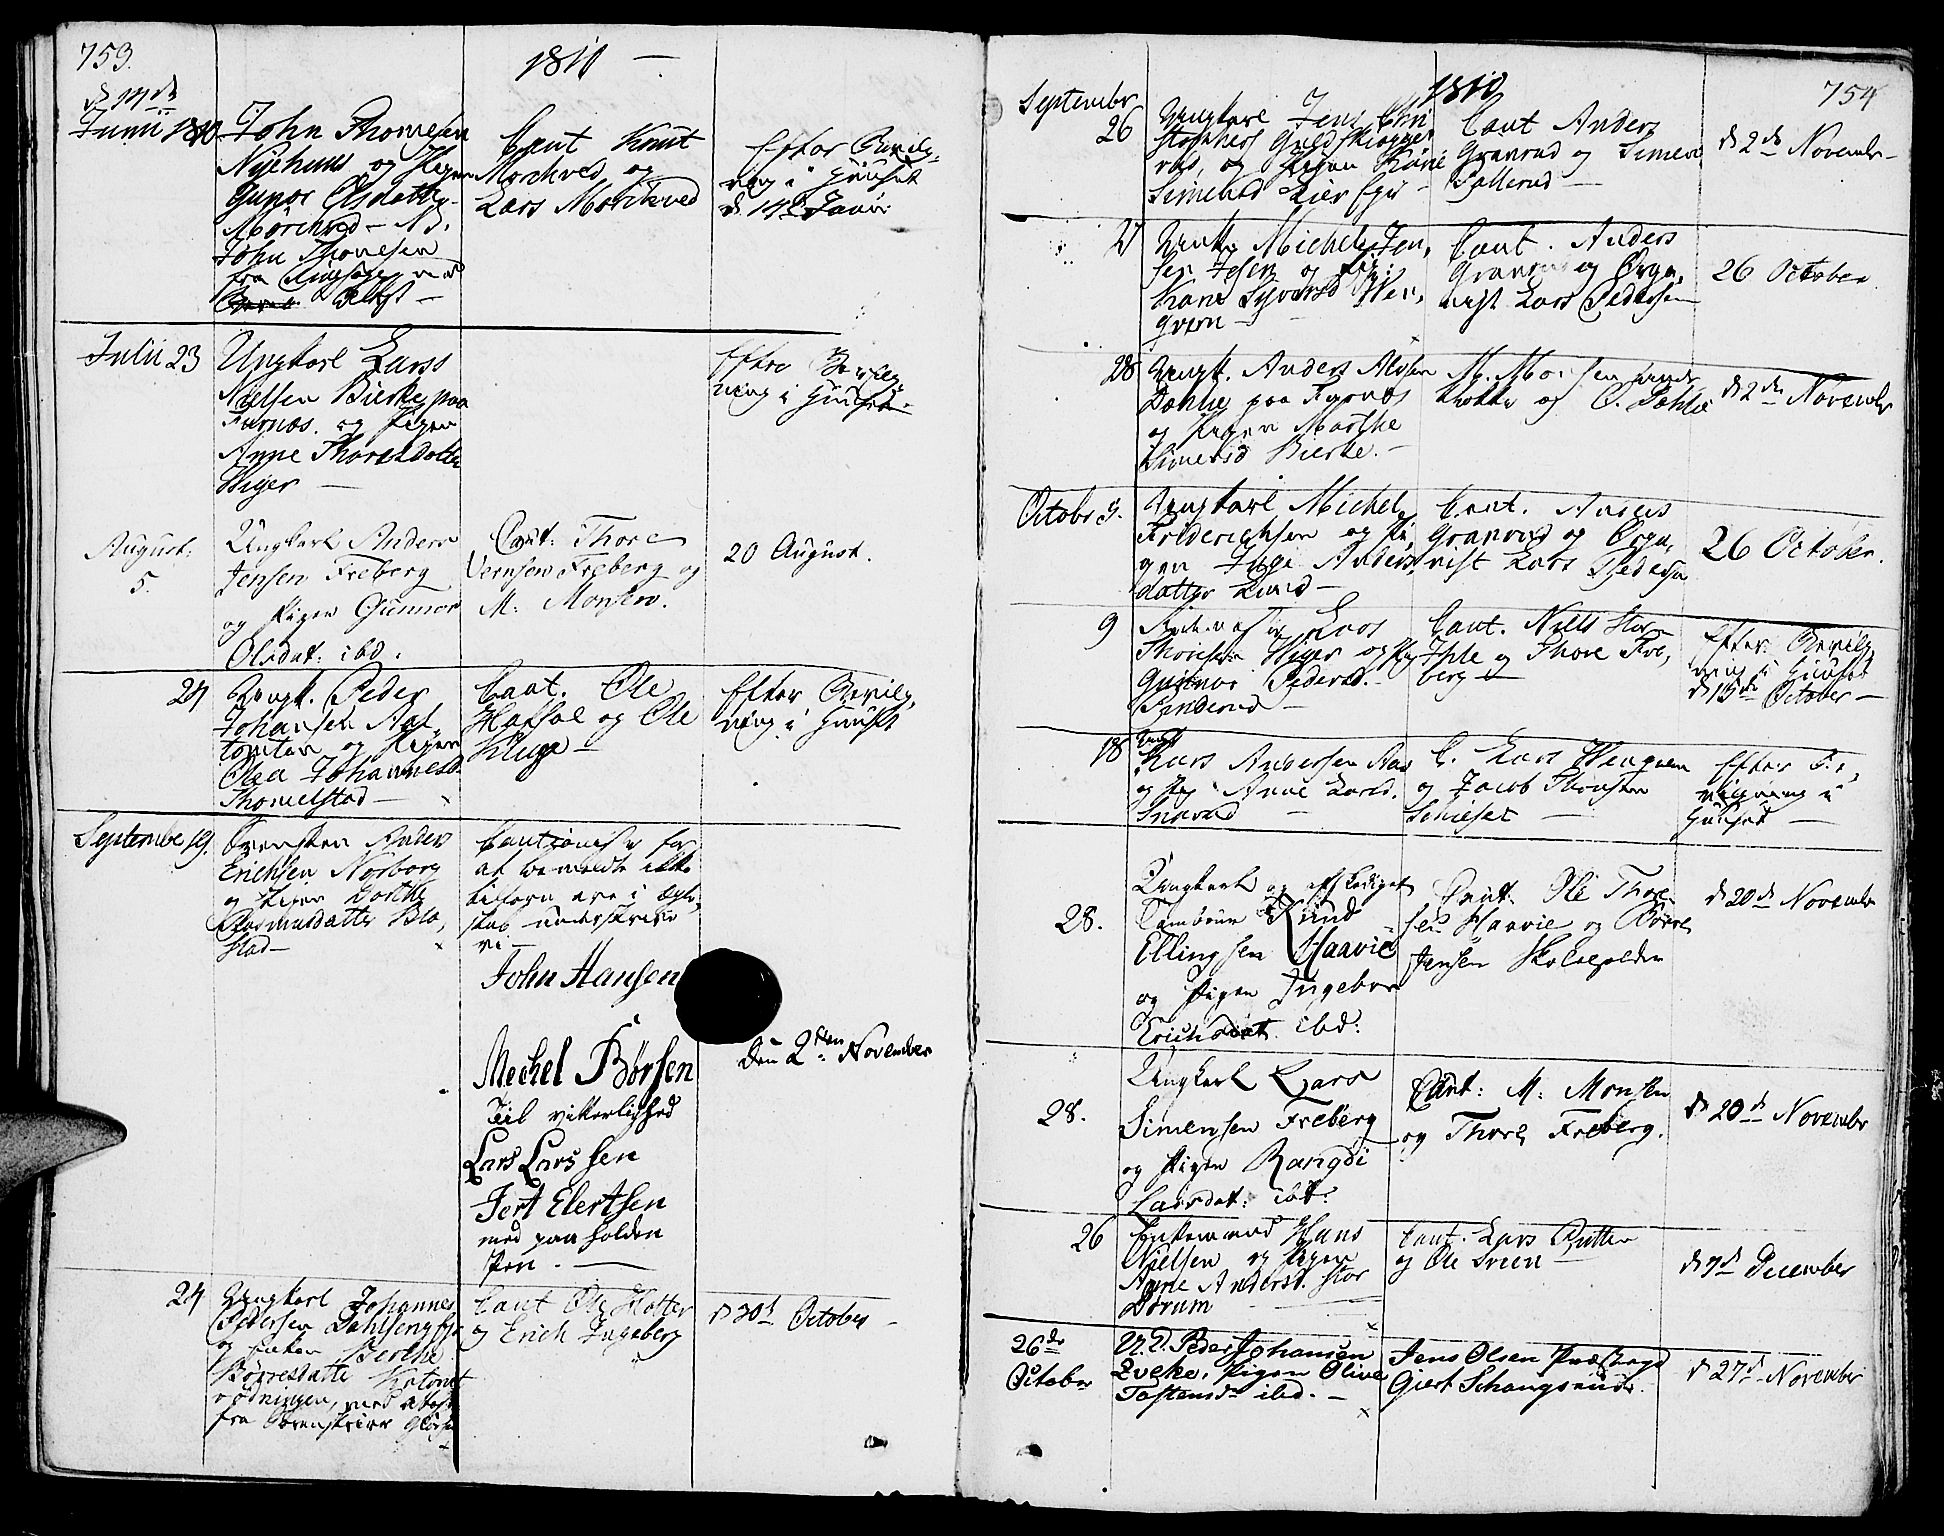 753.
1810 —
d 14de
Junii 1810.
John Thomesen
Nyehuus og Pigen
Gunor Olsdatter
Mörchved — NB.
John Thomesen
fra
Attest —
Caut Knut
Morchved og
Lars Morchved
Efter Bevilg-
ning i Huuset
d. 14de Junii
Julii 23
Ungkarl Larss
Nielsen Bierke paa
Furnæs. og Pigen
Anne Thoresdatter
Wiger —
Efter Bevilg-
ning i Huuset.
August:
5.
Ungkarl Anders
Jensen Freberg
og Pigen Gunnor
Olsdat: ibd.
Caut: Thore
Vernsen Freberg og
M: Monsen.
20 August.
24
Ungk. Peder
Johansen
og Pigen
Olea Johannesd.
Thomelstad —
Caut. Ole
Hafsal og Ole
Kluge —
Efter Bevilg-
ning i Huuset
September 19.
Svensken Anders
Erichsen Norborg
og Pigen Dorthe
Rasmusdatter Blo,
stad —
Cautionister for
at bemeldte ikke
tilforn ere i Ægte,
skab underskrive
vi —
John Hansen
Mechel Börsen
Til vitterlighed
Lars Larssen
Jert Elertsen
med paaholden
Pen. —
den 2den November
24
Ungkarl Johannes
Pedersen Dahlseng
og Enken Berthe
Börresdatter
med Attest
fra Sorenskriver
Caut Ole Hotter
og Erich Ingeberg
d 30d October —
754
1810
September
26
Ungkarl Jens Chri
stophers Guldskiogge
og Pigen Karie
Simensd Lier
Caut Anders
Granrud og Simen
Pallerud —
d 2de November —
27
Ungk. Michel Jen,
sen og
Karie Syversd Wen,
gvern —
Caut. Anders
Granrud og Orga,
nist Lars Pedersen
26 October
28
Ungk. Anders
Dæhlie paa Furnæs
og Pigen Marthe
Simensd Bierke. —
M. Monsen
og C. Dæhlie
d 2de November
Octobr 5.
Ungkarl Michel
Friderichsen og Pi,
gen Inge Anders,
datter Lund —
Caut. Anders
Granrud og Orga,
nist Lars Pedersen
26 October.
9
Lars
Thomesen Wiger og Pig
Gunnor Pedersd. —
Caut. Niels Stor
og Thore Fre,
berg —
Efter Bevilg,
ning i Huuset
d 15de October —
18
Ungk
Lars Andersen Aas
og Pig. Anne Larsd.
—
C. Lars Wengvern
og Jacob Thomsen
—
Efter Be,
vilgning i
Huuset —
28.
Ungkarl og afskediget
Tambour Knud
Ellingsen Haavie
og Pigen Ingebor
Erichsdat. ibd:
Caut: Ole Thore
sen Haavie og Börre
Jensen Skoleholder
d 20d November
28.
Ungkarl Lars
Simensen Freberg
og Pigen Rangdi
Larsdat: ibd:
Caut: M: Monsen
og Thore Freberg.
d 20d November
26
Enkemand Hans
Nielsen og Pigen
Anne Andersd. Stor
Dörum —
Caut. Lars Rytter
og Ole Sveen —
d 7d December
26de
October
Peder Johansen
Evcke. Pigen Olive
Tostensdr ibd. —
Jens Olsen
Giert Schangsrude.
d 27d November